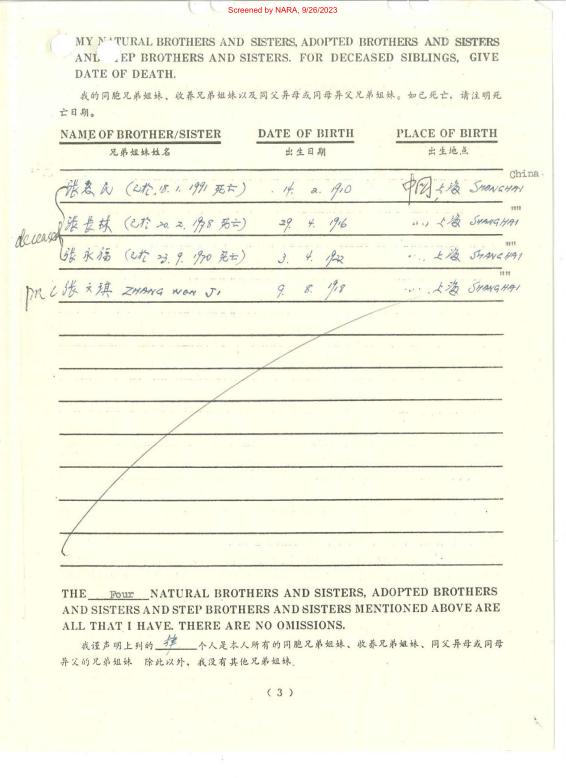 Screened by NARA, 9/26/2023
MY NATURAL BROTHERS AND SISTERS, ADOPTED BROTHERS AND SISTERS
AND STEP BROTHERS AND SISTERS. FOR DECEASED SIBLINGS, GIVE
DATE OF DEATH.
我的同胞兄弟姐妹、收养兄弟姐妹以及同父异母或同母异父兄弟姐妹。如已死亡，请注明死
亡日期。
NAME OF BROTHER/SISTER DATE OF BIRTH PLACE OF BIRTH
兄弟姐妹姓名 出生日期 出生地点
China
张 民 (已於.18.1.1991 死亡) 14. 2. 1910 中国,上海 SHANGHAI
张長林 (已於 20.2.1978 死亡) 29. 4. 1916 .., 上海 SHANGHAI ""
deceased
张永福 (已於 23.9.1970 死亡) 3. 4. 1922 .... 上海 SHANGHAI ""
PRC 张文琪 ZHANG WEN JI 9. 8. 1918 .... 上海 SHANGHAI ""
THE Four NATURAL BROTHERS AND SISTERS, ADOPTED BROTHERS
AND SISTERS AND STEP BROTHERS AND SISTERS MENTIONED ABOVE ARE
ALL THAT I HAVE. THERE ARE NO OMISSIONS.
我谨声明上列的 个人是本人所有的同胞兄弟姐妹、收养兄弟姐妹、同父异母或同母
异父的兄弟姐妹 除此以外，我没有其他兄弟姐妹.
( 3 )